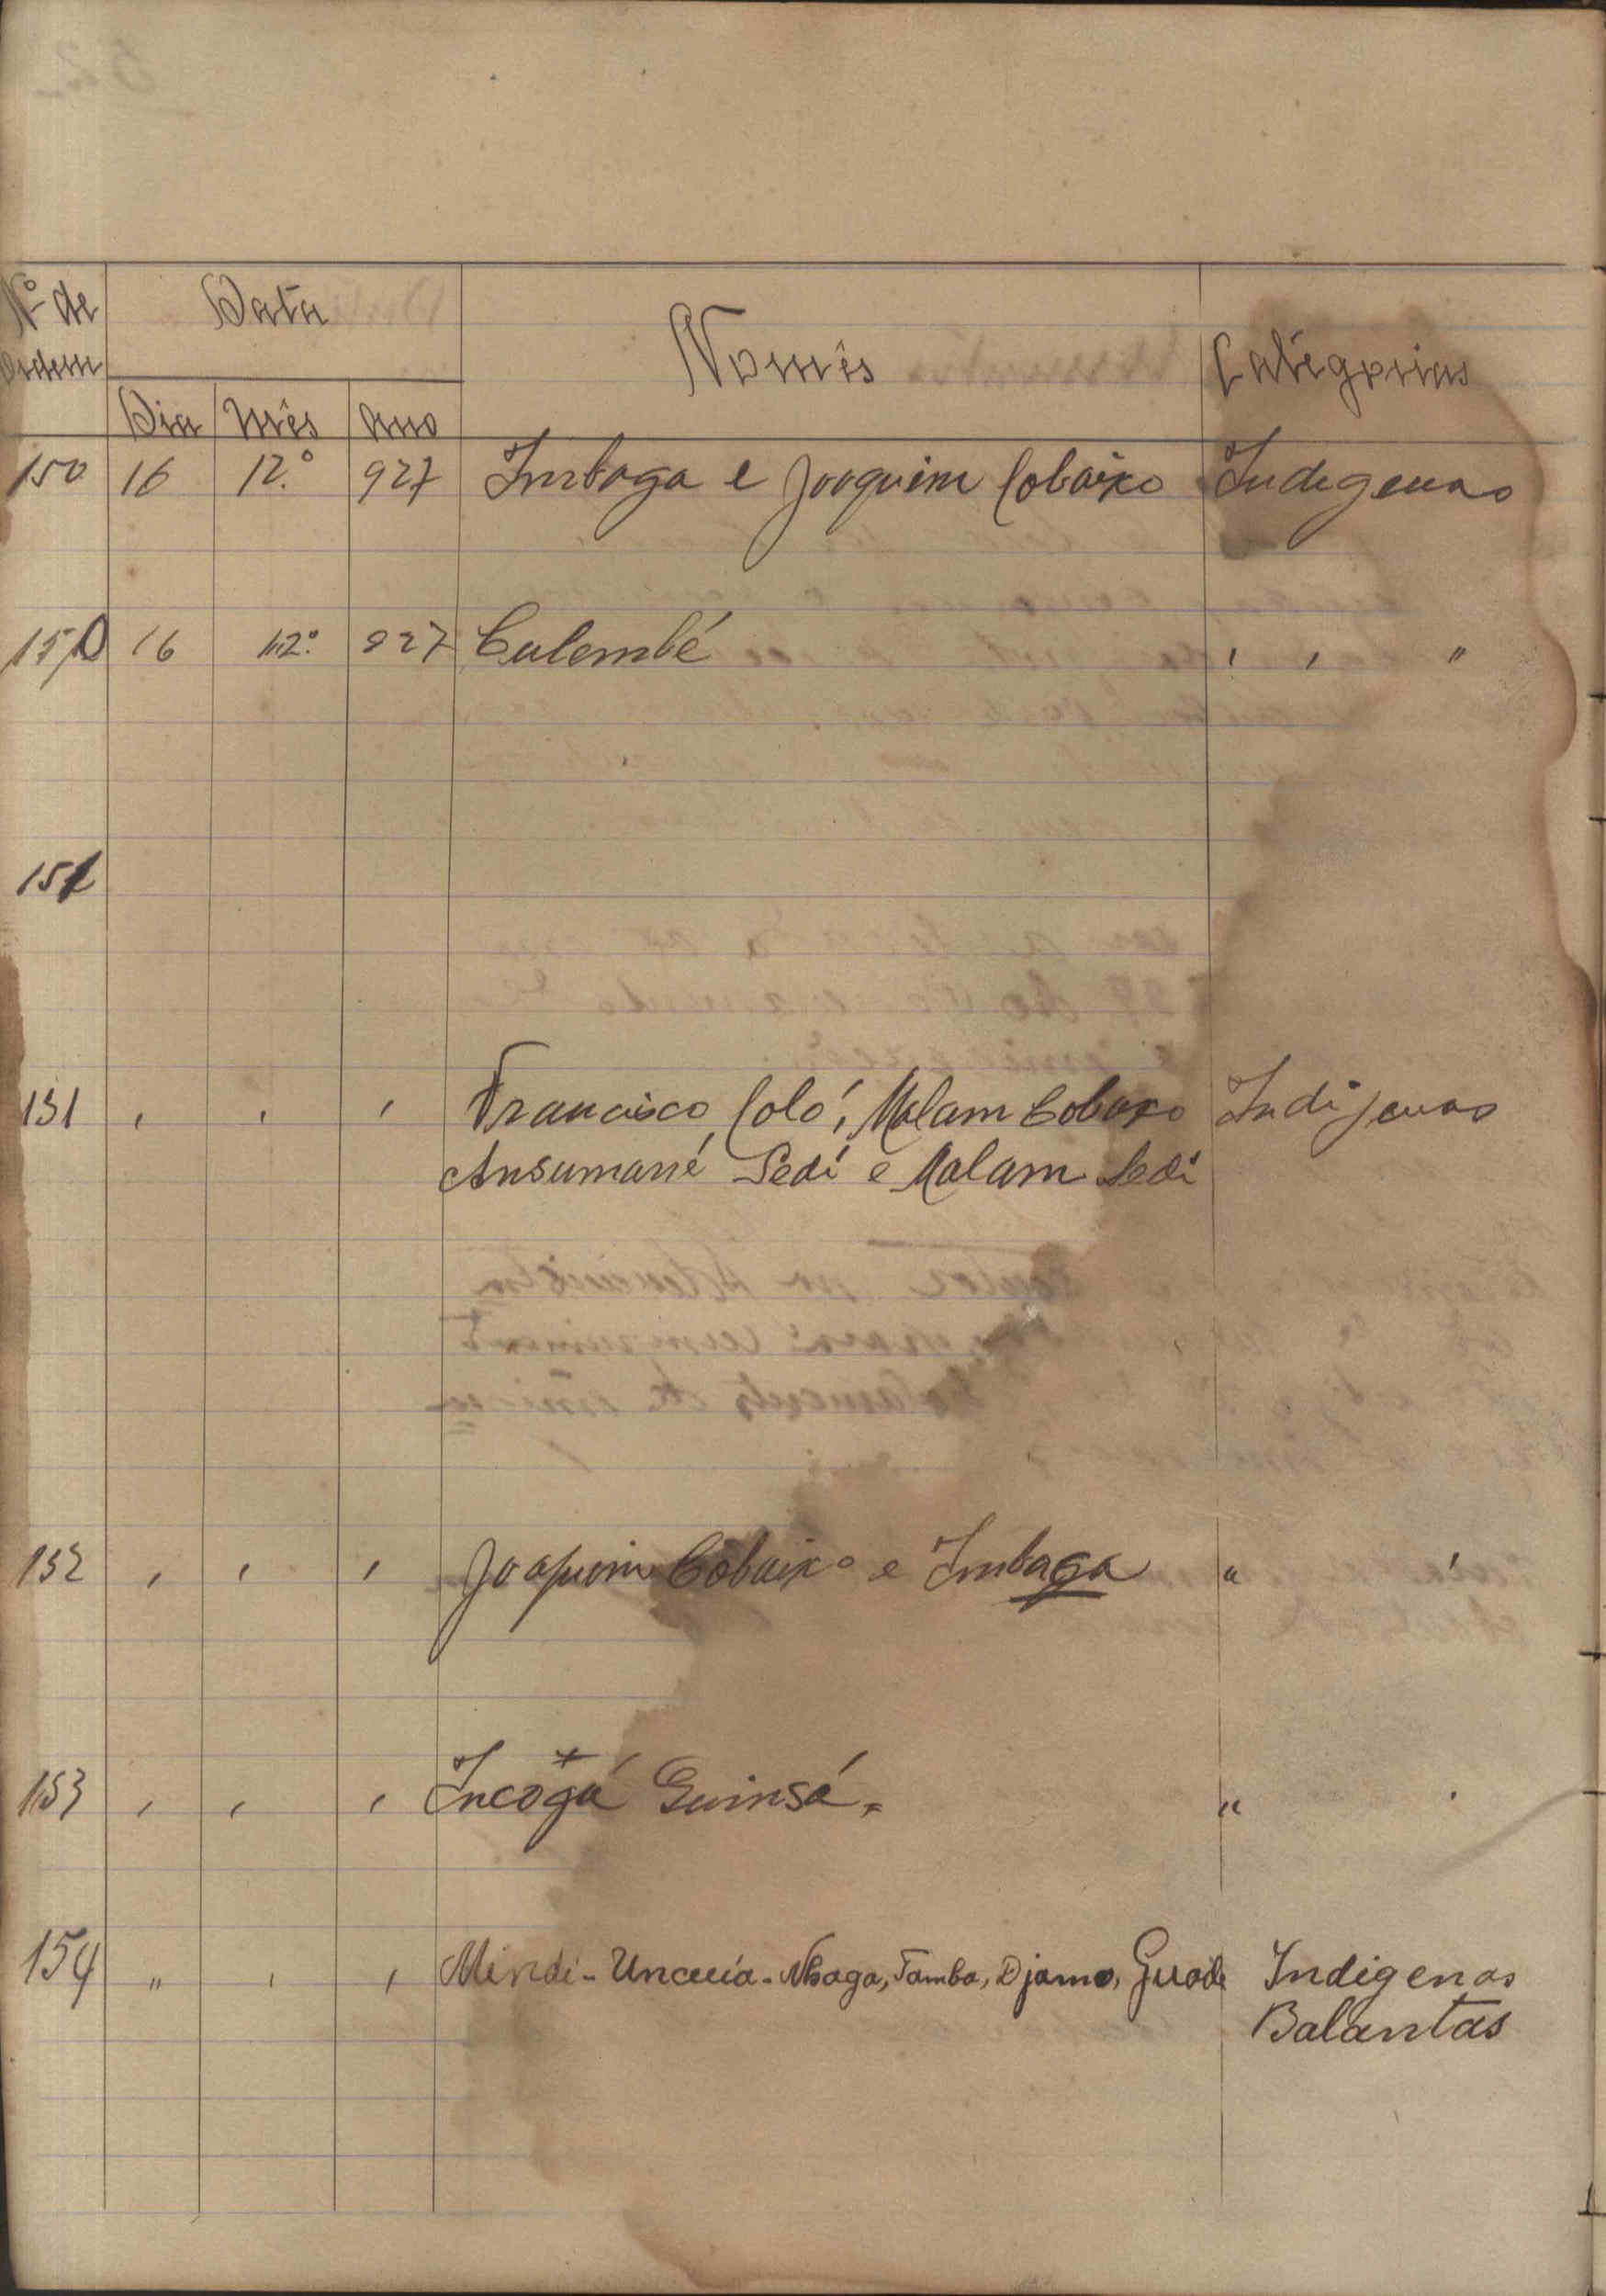 Nº de Ordem Data Nomês Categorias
Dia Mês Ano
150 16 12.º 927 Imbaga e Joaquim Cobaixo Indegenas
150 16 12.º 927 Calembé ' ' "
151
151 ' ' ' Francisco Coló, Malam Cobaxo Indijenas
Ansumané Sedi e Malam Sedi
152 ' ' ' Joaquim Cobaixo e Imbaga " '
153 ' ' ' Incogá Guinsá " '
154 " ' ' Mindi - Uncuia - Nhaga, Tamba, Djamo, Guade Indigenas
Balantas